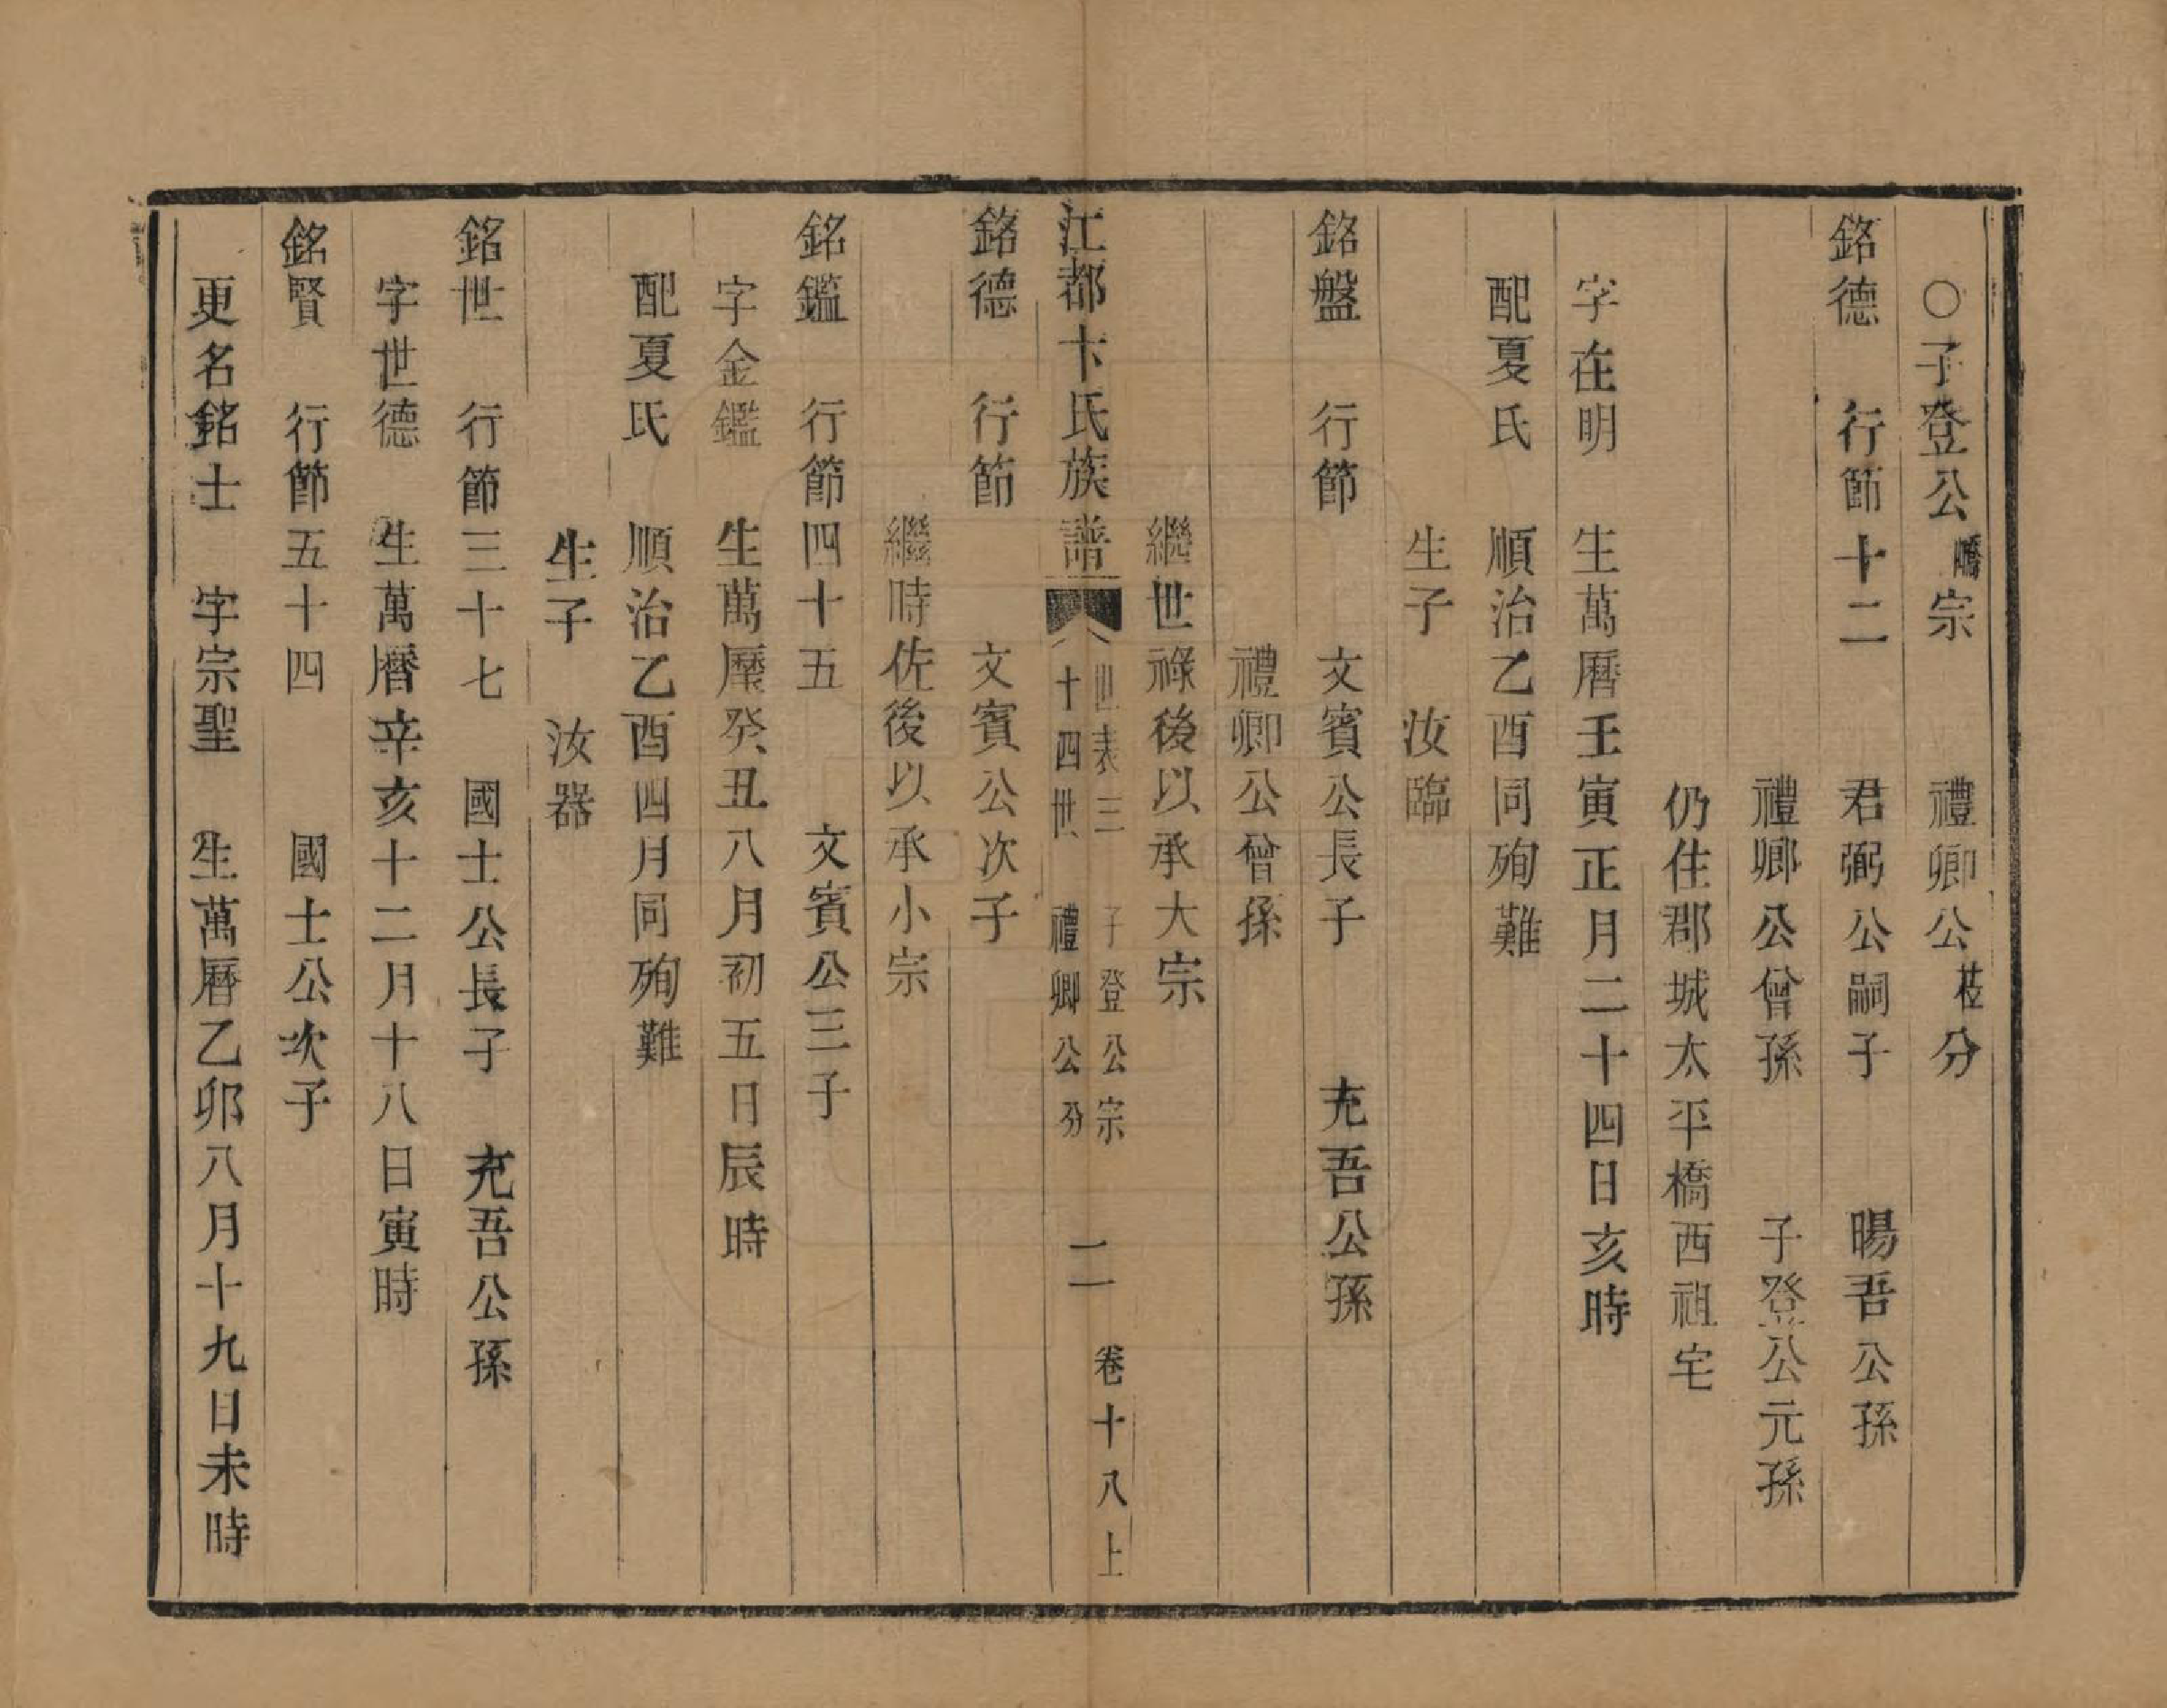 〇子登公嶓宗　禮卿公枝分
銘德　行節十二　君弼公嗣子　暘吾公孫
禮卿公曾孫　子登公元孫
仍住郡城太平橋西祖宅
字在明　生萬曆壬寅正月二十四日亥時
配夏氏　順治乙酉同殉難
生子　汝臨
銘盤　行節　文賓公長子　充吾公孫
禮卿公曾孫
繼世祿後以承大宗
江都卞氏族譜　世表三　十四世　子登公宗　禮卿公分　二　卷十八上
銘德　行節　文賓公次子
繼時佐後以承小宗
銘鑑　行節四十五　文賓公三子
字金鑑　生萬曆癸丑八月初五日辰時
配夏氏　順治乙酉四月同殉難
生子　汝器
銘世　行節三十七　國士公長子　充吾公孫
字世德　生萬曆辛亥十二月十八日寅時
銘賢　行節五十四　國士公次子
更名銘士　字宗聖　生萬曆乙卯八月十九日未時